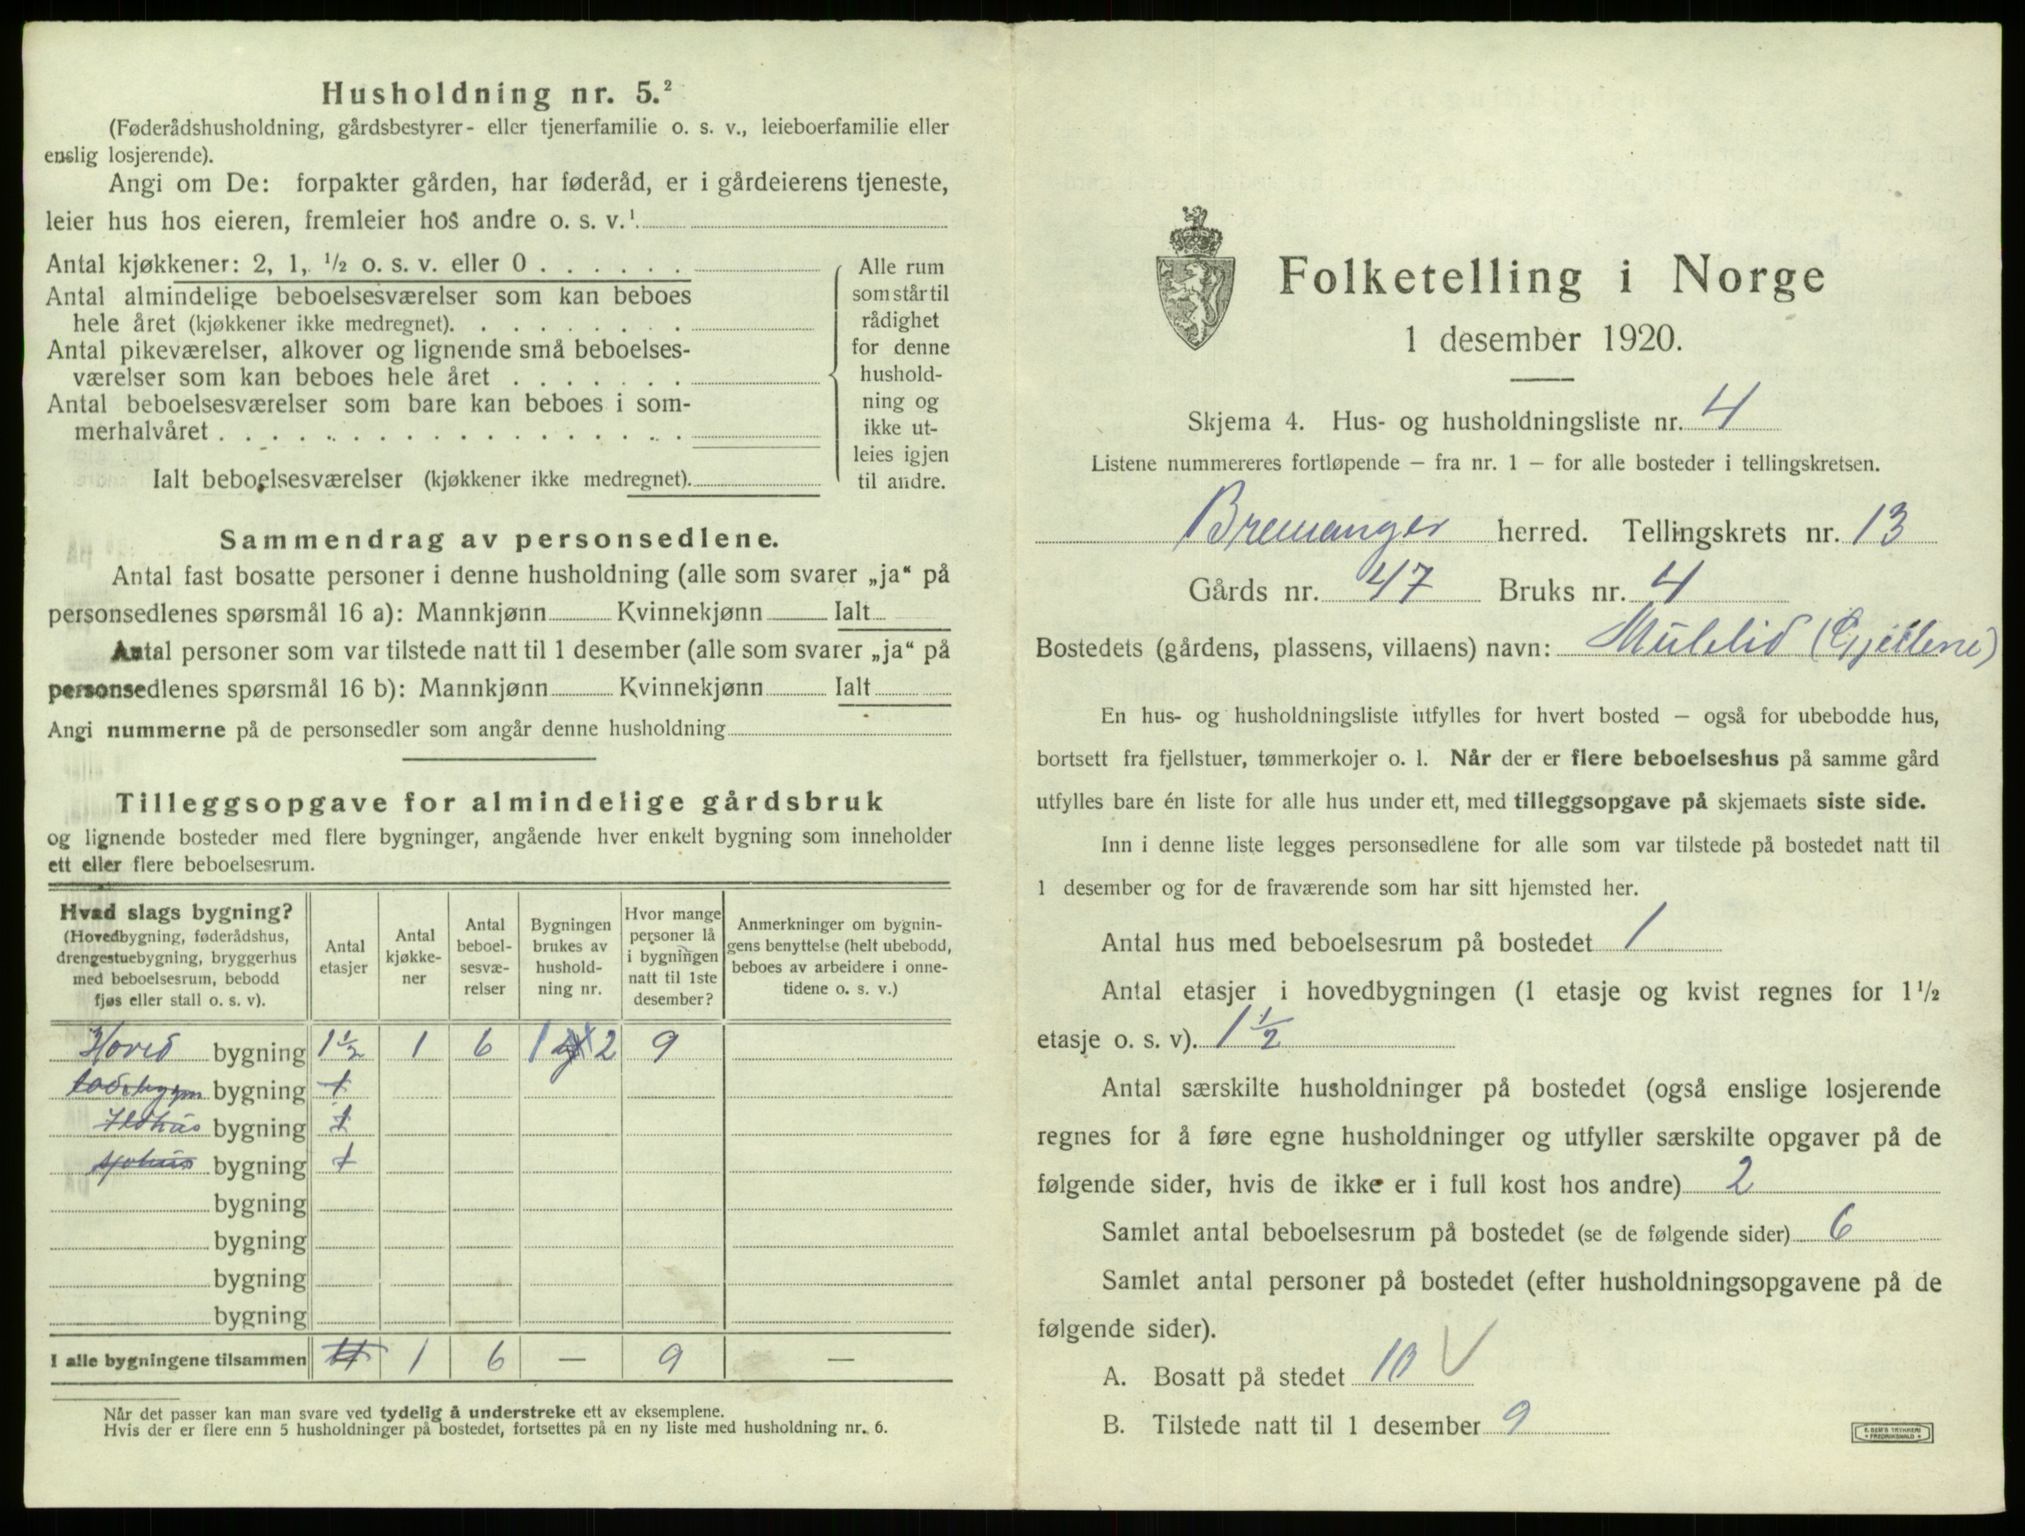 Husholdning nr. 5.²
(Føderådshusholdning, gårdsbestyrer- eller tjenerfamilie o. s. v., leieboerfamilie eller
enslig losjerende).
Angi om De: forpakter gården, har føderåd, er i gårdeierens tjeneste,
leier hus hos eieren, fremleier hos andre o. s. v.¹
Antal kjøkkener: 2, 1, ½ o. s. v. eller 0
Antal almindelige beboelsesværelser som kan beboes
hele året (kjøkkener ikke medregnet).
Antal pikeværelser, alkover og lignende små beboelses-
værelser som kan beboes hele året
Antal beboelsesværelser som bare kan beboes i som-
merhalvåret
Ialt beboelsesværelser (kjøkkener ikke medregnet).
Alle rum
som står til
rådighet
for denne
hushold-
ning og
ikke ut-
leies igjen
til andre.
Sammendrag av personsedlene.
Antal fast bosatte personer i denne husholdning (alle som svarer „ja“ på
personsedlenes spørsmål 16 a): Mannkjønn Kvinnekjønn Ialt
Antal personer som var tilstede natt til 1 desember (alle som svarer „ja“ på
personsedlenes spørsmål 16 b): Mannkjønn Kvinnekjønn Ialt
Angi nummerne på de personsedler som angår denne husholdning
Tilleggsopgave for almindelige gårdsbruk
og lignende bosteder med flere bygninger, angående hver enkelt bygning som inneholder
ett eller flere beboelsesrum.
Hvad slags bygning?
(Hovedbygning, føderådshus,
drengestuebygning, bryggerhus
med beboelsesrum, bebodd
fjøs eller stall o. s. v).
Antal
etasjer
Antal
kjøkke-
ner
Antal
beboel-
sesvæ-
relser
Bygningen
brukes av
hushold-
ning nr.
Hvor mange
personer lå
i bygningen
natt til 1ste
desember?
Anmerkninger om bygnin-
gens benyttelse (helt ubebodd,
beboes av arbeidere i onne-
tidene o. s. v.)
Hoved bygning 1½ 1 6 1 og 2 9
bygning 1
Ildhus bygning 1
sjøhus bygning 1
bygning
bygning
bygning
bygning
I alle bygningene tilsammen 1 6 — 9 —
Når det passer kan man svare ved tydelig å understreke ett av eksemplene.
Hvis der er flere enn 5 husholdninger på bostedet, fortsettes på en ny liste med husholdning nr. 6.
Folketelling i Norge
1 desember 1920.
Skjema 4. Hus- og husholdningsliste nr. 4
Listene nummereres fortløpende – fra nr. 1 – for alle bosteder i tellingskretsen.
Bremanger herred. Tellingskrets nr. 13
Gårds nr. 47 Bruks nr. 4
Bostedets (gårdens, plassens, villaens) navn: Mulelid
En hus- og husholdningsliste utfylles for hvert bosted – også for ubebodde hus,
bortsett fra fjellstuer, tømmerkojer o. l. Når der er flere beboelseshus på samme gård
utfylles bare én liste for alle hus under ett, med tilleggsopgave på skjemaets siste side.
Inn i denne liste legges personsedlene for alle som var tilstede på bostedet natt til
1 desember og for de fraværende som har sitt hjemsted her.
Antal hus med beboelsesrum på bostedet 1
Antal etasjer i hovedbygningen (1 etasje og kvist regnes for 1½
etasje o. s. v). 1½
Antal særskilte husholdninger på bostedet (også enslige losjerende
regnes for å føre egne husholdninger og utfyller særskilte opgaver på de
følgende sider, hvis de ikke er i full kost hos andre) 2
Samlet antal beboelsesrum på bostedet (se de følgende sider) 6
Samlet antal personer på bostedet (efter husholdningsopgavene på de
følgende sider).
A. Bosatt på stedet 10 V
B. Tilstede natt til 1 desember 9
E. SEM'S TRYKKERI
FREDRIKSHALD